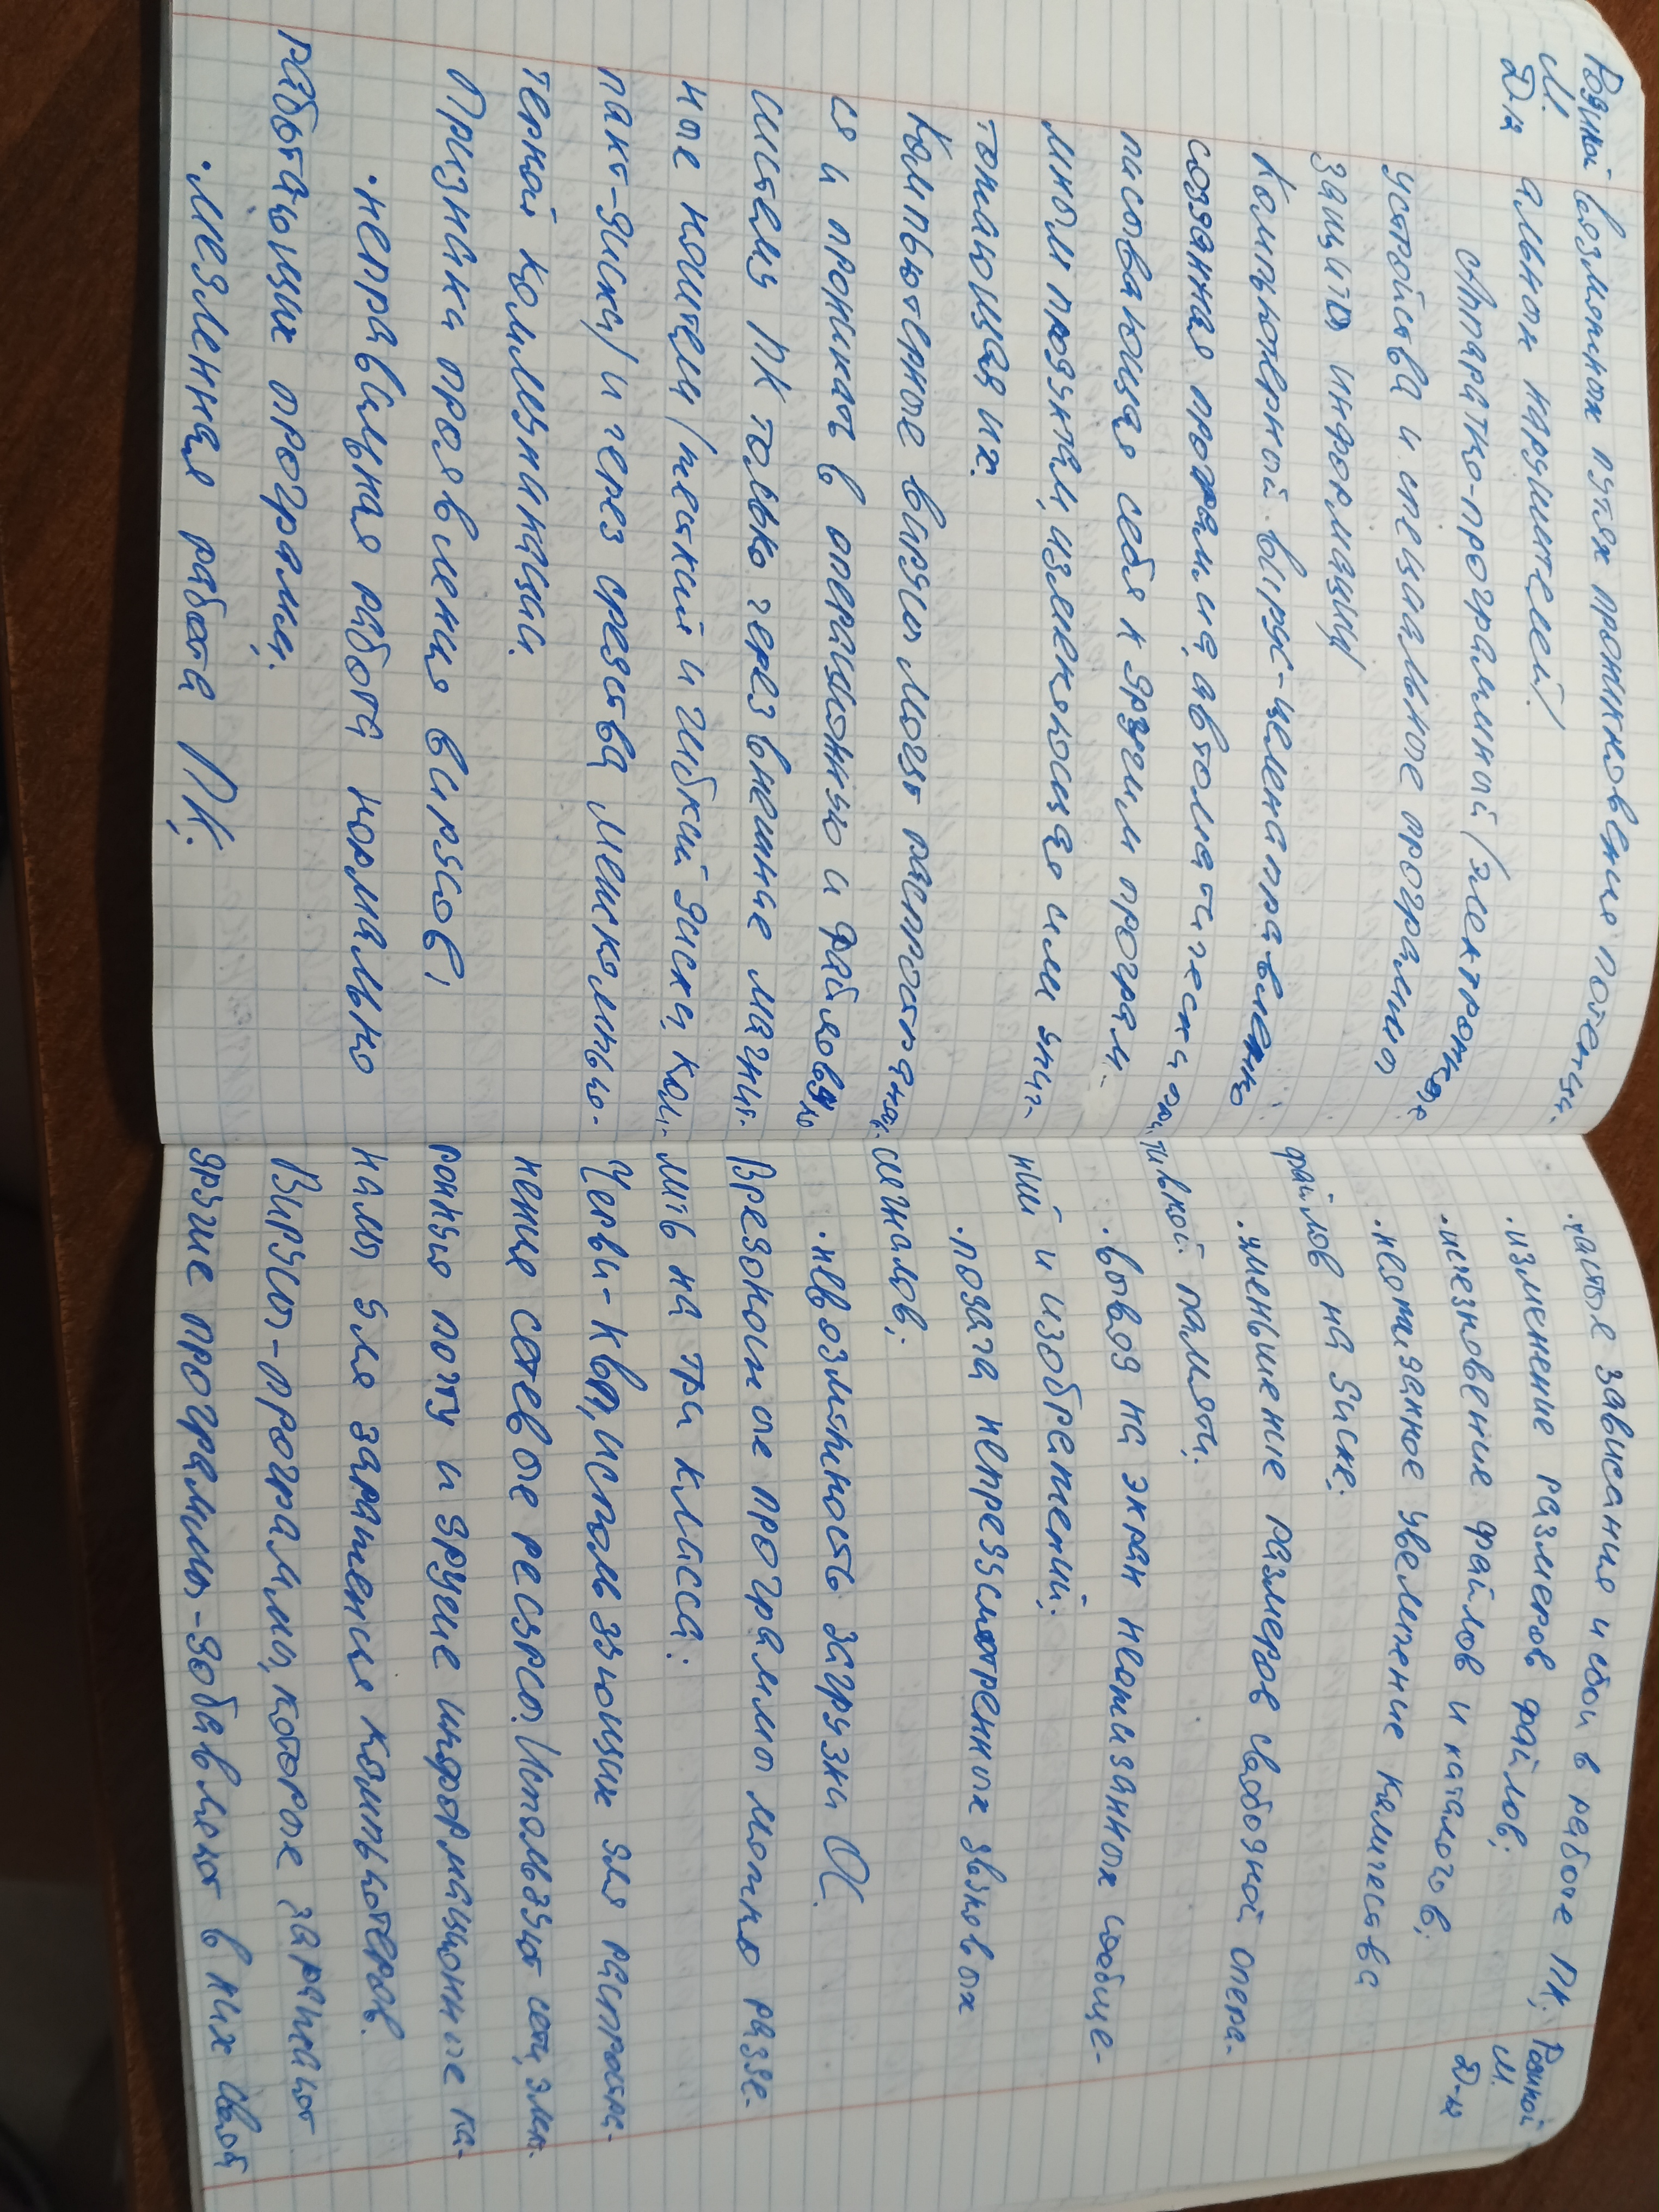 Родный
М.
Д-14
возможных путях проникновение потенци-
альных нарушителей/
Аппаратно-программный (электронное
устройства и специальное программы
защиты информации/
Компьютерный вирус-целенаправленно
созданная программа, автоматически при-
писывающая себя к другим програм-
мным продуктам, изменяющая или унич-
тожающая их.
Компьютерные вирусы могут распространят-
ся и проникать в операционную и файловую
системы ПК только через внешние магнит-
ные носители (жесткий и гибкий диски, ком-
пакт-диски) и через средства межкомпью-
терной коммуникации.
Признаки проявления вирусов:
·неправильная работа нормально
работающих программ;
·медленная работа ПК;
·частые зависание и сбои в работе ПК;
·изменение размеров файлов;
·исчезновение файлов и каталогов;
·неожиданное увеличение количества
файлов на диске;
·уменьшение размеров свободной опера-
тивной памяти;
·вывод на экран неожиданных сообще-
ний и изображений;
·подача непредусмотренных звуковых
сигналов;
·невозможность загрузки ОС.
Вредоносные программы можно разде-
лить на три класса:
Черви- используюших для распростра-
нение сетевые ресурсы. Используют сети, элект-
ронную почту и другие информационные ка-
налы для заражения компьютеров.
Вирусы-программы, которые заражают
другие программы-добавляют в них свой